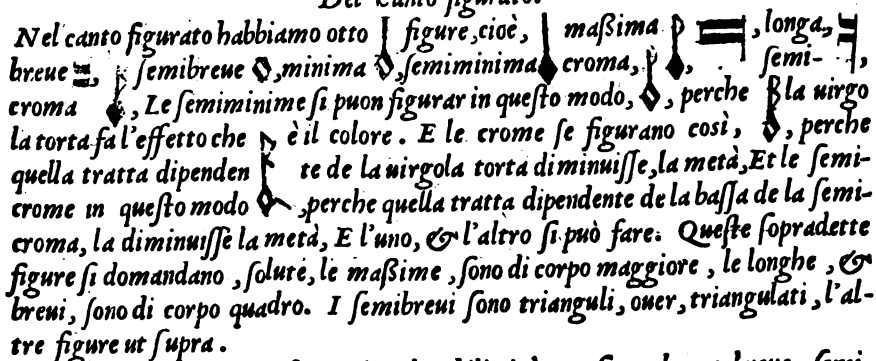 Del Canto figurato.
Nel canto figurato habbiamo otto figure, cioè, maßima , longa,
breue , semibreue , minima , semiminima croma, , semi-
croma , Le semiminime si puon figurar in questo modo, , perche la uirgo
la torta fa l'effetto che è il colore. E le crome se figurano così, , perche
quella tratta dipenden te de la uirgola torta diminuisse, la metà, Et le semi-
crome in questo modo , perche quella tratta dipendente de la bassa de la semi-
croma, la diminuisse la metà, E l'uno, & l'altro si può fare. Queste sopradette
figure si domandano , solute, le maßime , sono di corpo maggiore , le longhe , &
breui, sono di corpo quadro. I semibreui sono trianguli, ouer, triangulati, l'al-
tre figure ut supra.